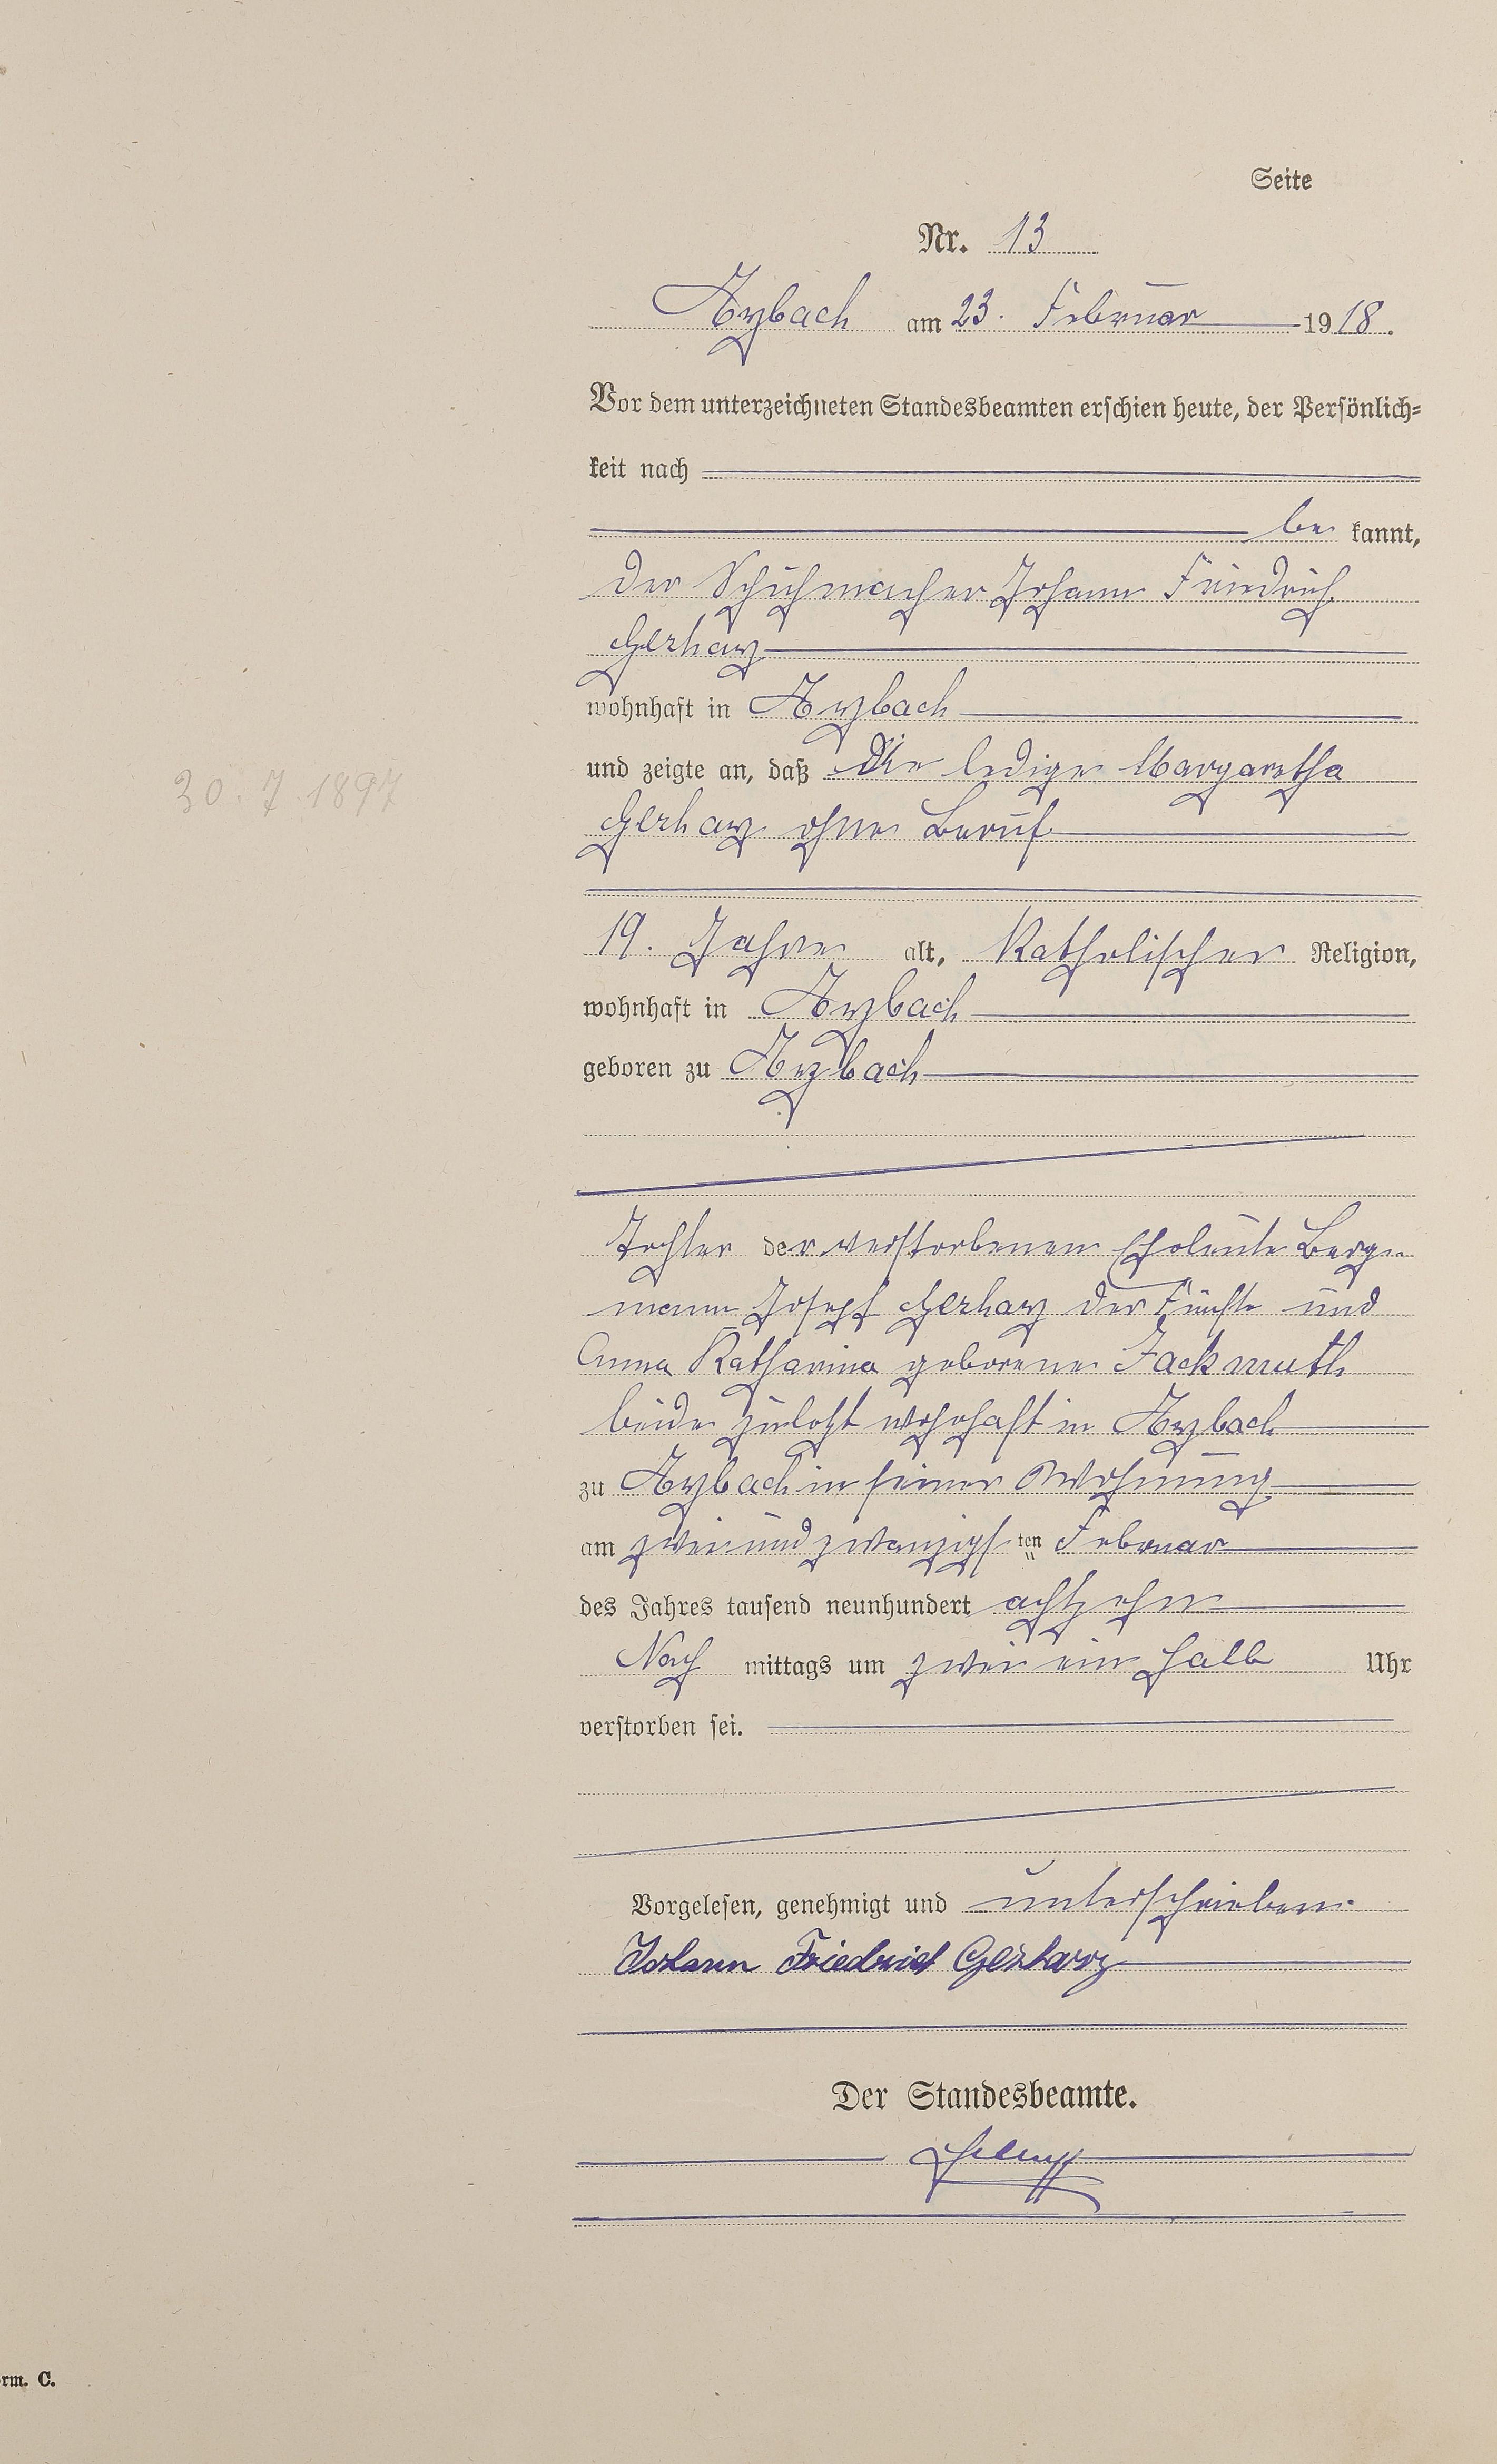 Seite
Nr. 13
Arzbach am 23. Februar 1918.
Vor dem unterzeichneten Standesbeamten erschien heute, der Persönlich=
keit nach
be kannt,
der Schuhmacher Johann Friedrich
Gerharz
wohnhaft in Arzbach
und zeigte an, daß Die ledige Margaretha
Gerharz ohne Beruf
30.7.1897
19. Jahre alt, Katholischer Religion,
wohnhaft in Arzbach
geboren zu Arzbach
Tochter der verstorbenen Eheleute Berg=
mann Josef Gerharz der Fünfte und
Anna Katharina geborene Jackmuth
beide zuletzt wohnhaft in Arzbach
zu Arzbach in seiner Wohnung
am zweiundzwanzigsten Februar
des Jahres tausend neunhundert achtzehn
Nach mittags um zwei ein halb Uhr
verstorben sei.
Vorgelesen, genehmigt und unterschrieben
Johann Friedrich Gerharz
Der Standesbeamte.
rm. C.